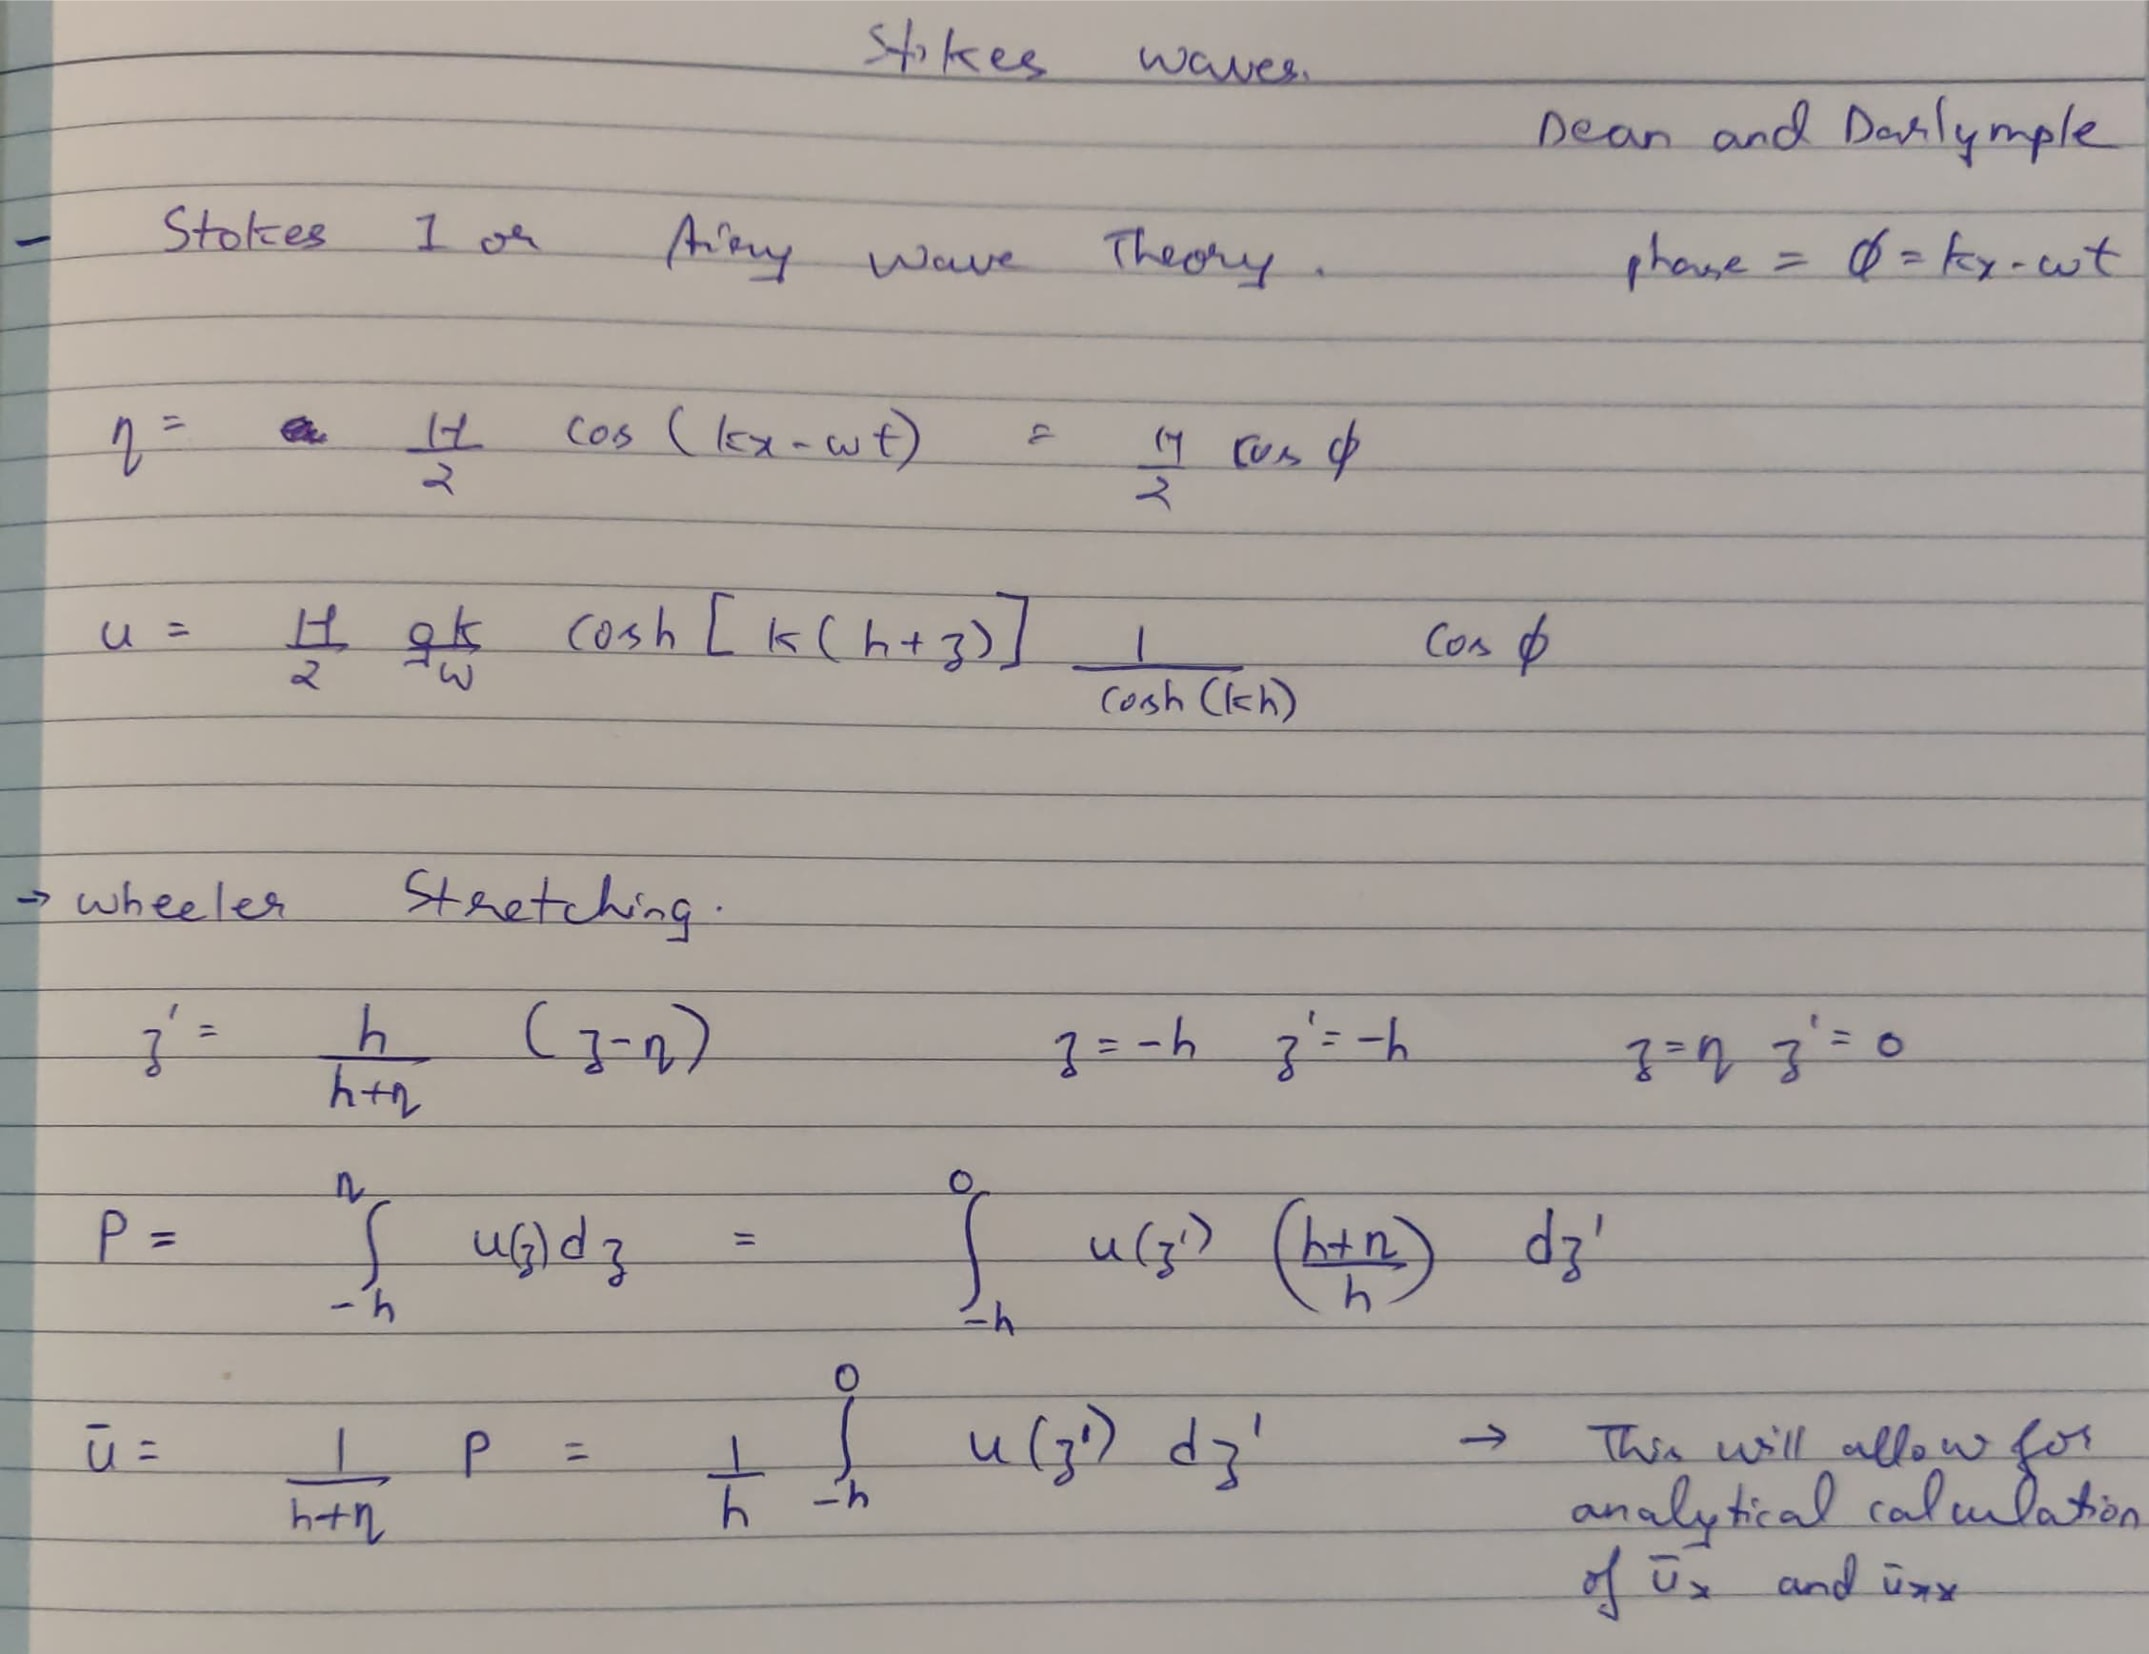 Stokes waves.
Dean and Darlymple
- Stokes I or Airy wave Theory. phase = ϕ = kx - ωt
η = H/2 cos (kx - ωt) = H/2 cos ϕ
u = H/2 gk/ω cosh [k(h+z)] 1/cosh(kh) cos ϕ
→ wheeler Stretching.
z' = h/(h+η) (z-η) z = -h z' = -h z = η z' = 0
P = ∫_{-h}^{η} u(z) dz = ∫_{-h}^{0} u(z') ((h+η)/h) dz'
ū = 1/(h+η) P = 1/h ∫_{-h}^{0} u(z') dz' → This will allow for
analytical calculation
of ūx and ūxx